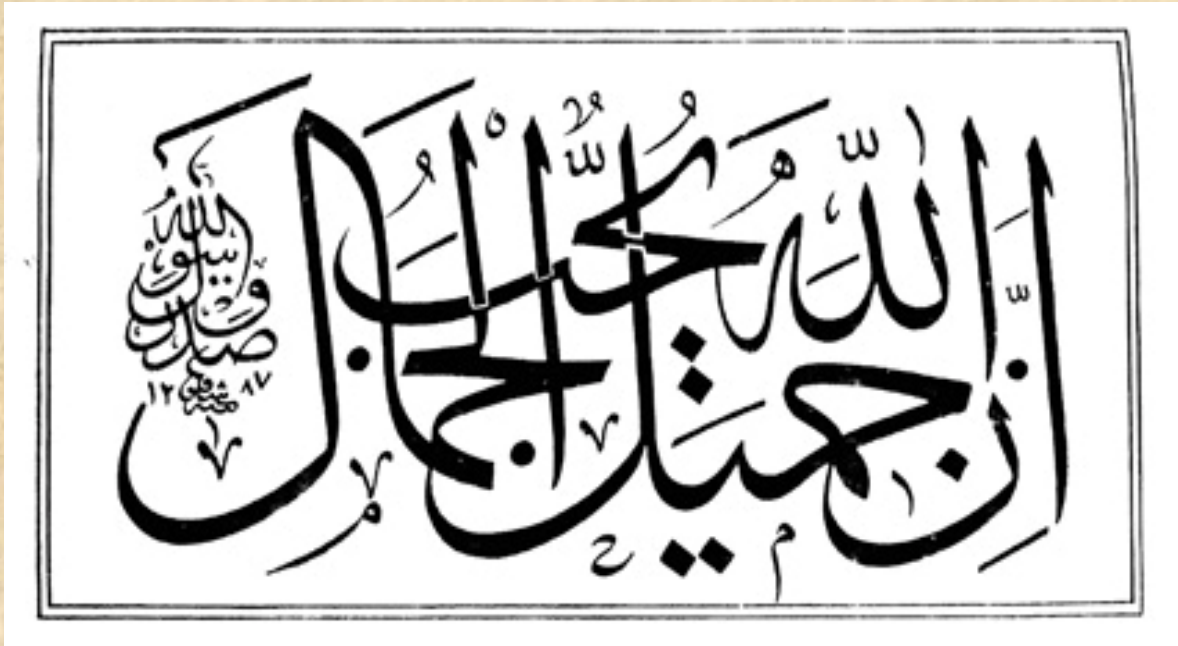 إنَّ اللّٰهَ جميلٌ يُحِبُّ الْجَمَالَ
صدق رسول الله
شفيق
١٢٨٧